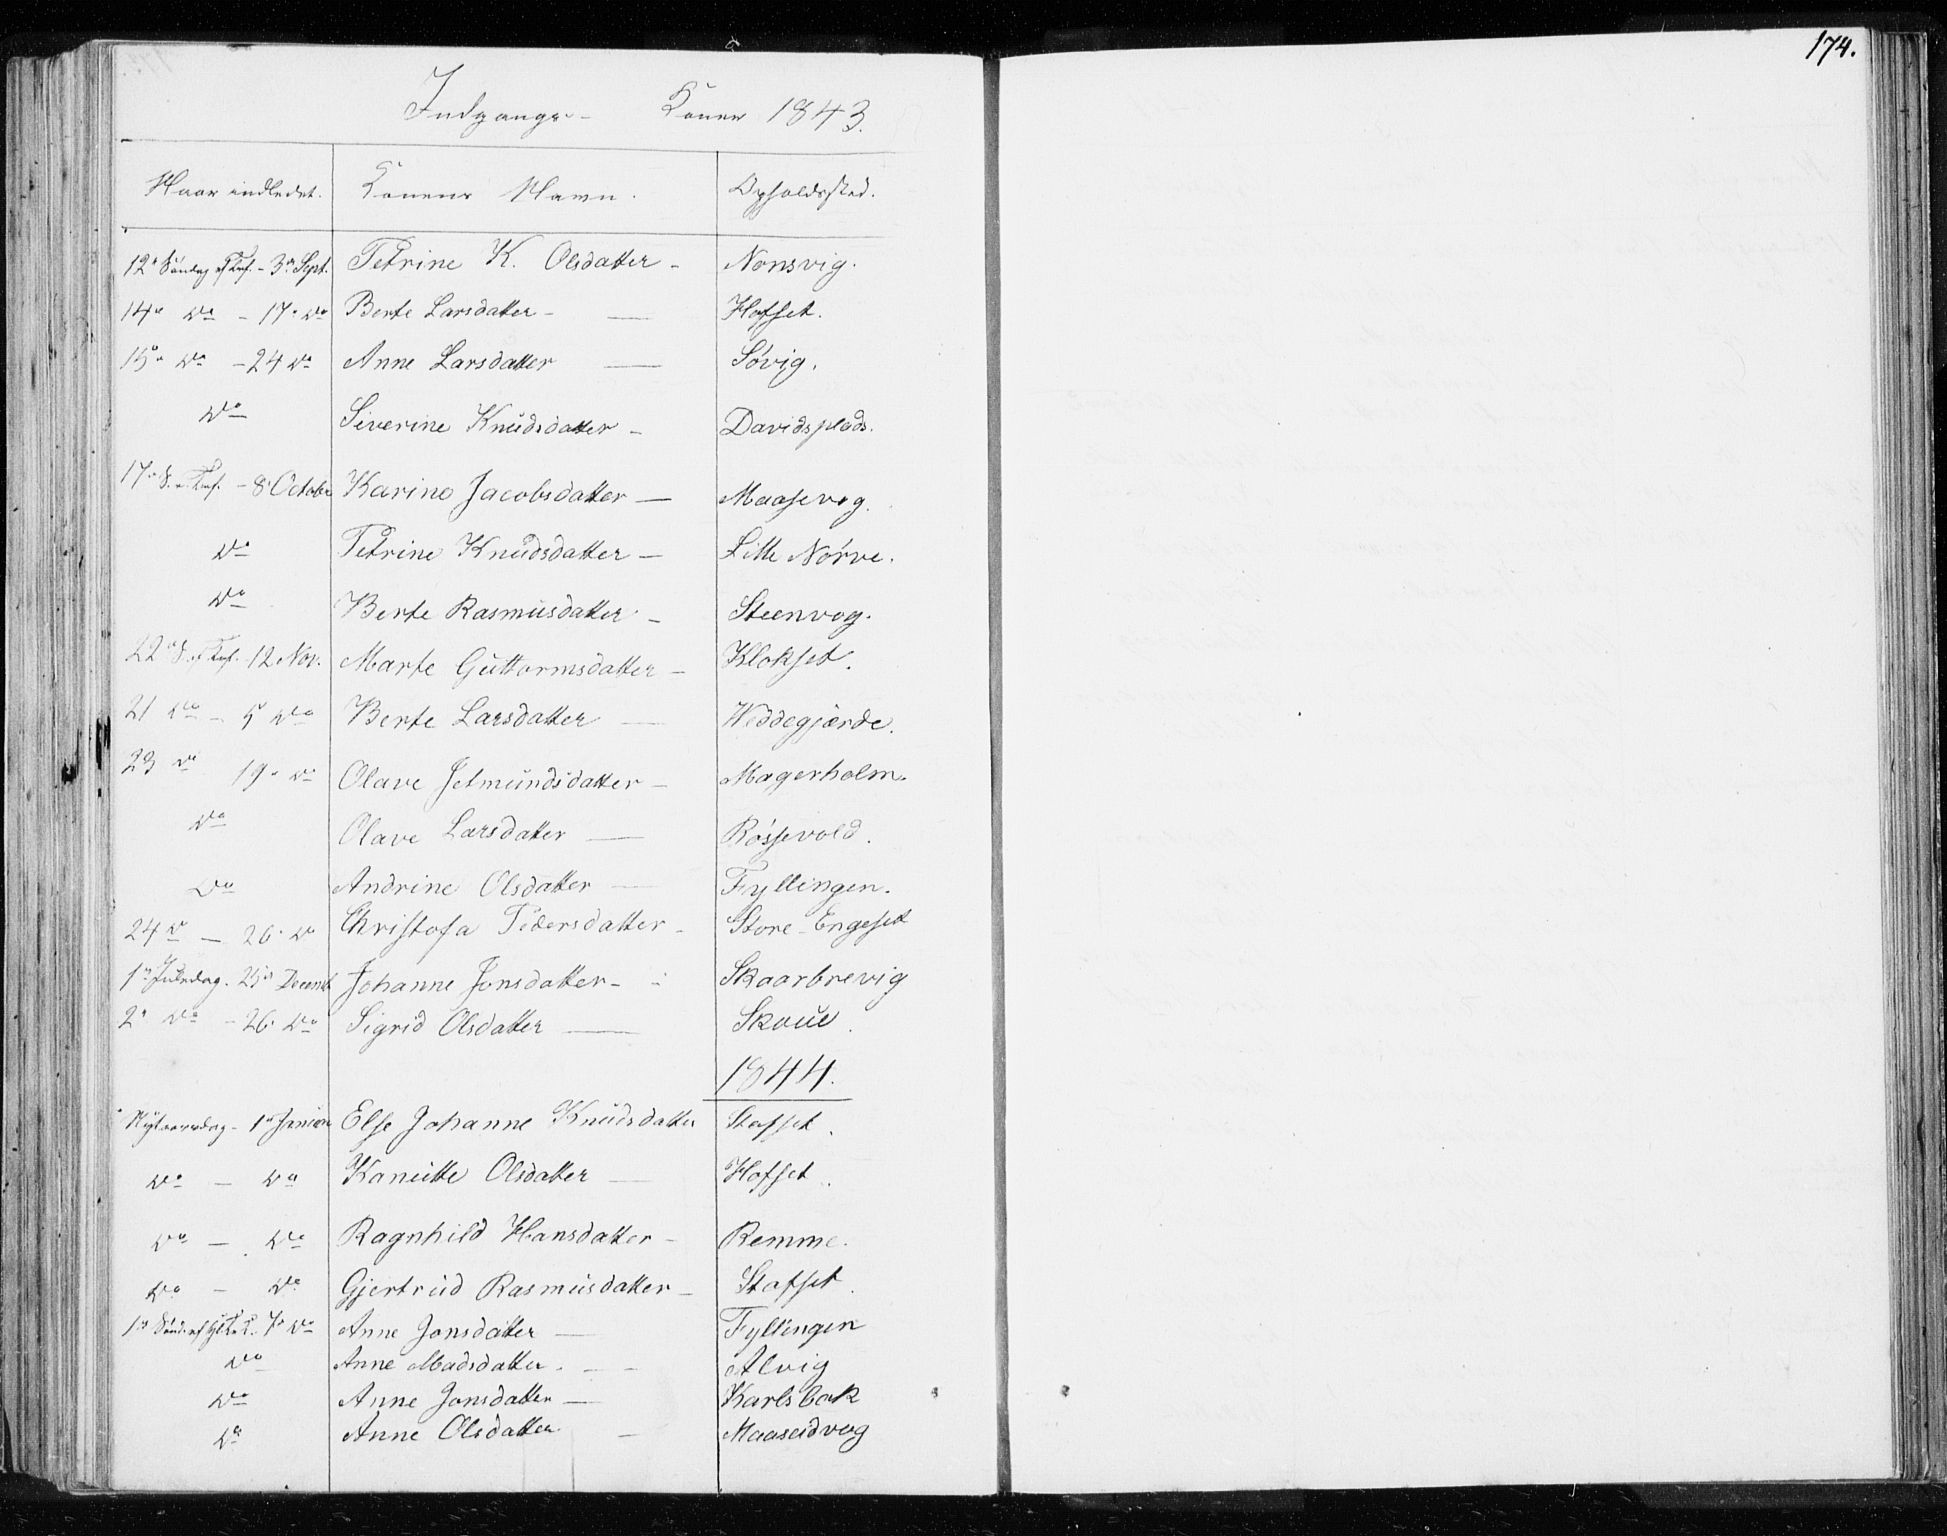 174.
Indgangs- Koner 1843.
Naar indledet. Konens Navn. Opholdssted.
12te Søndag ef Tref. - 3die Sept. Petrine K. Olsdatter - Nonsvig.
14de do - 17de do Berte Larsdatter - Hofset.
15de do - 24 do Anne Larsdatter Søvig.
do Siverine Knudsdatter - Davidsplads.
17de S. e. Tref. - 8de October Karine Jacobsdatter - Maasevog.
do Petrine Knudsdatter - Litle Nørve.
do Berte Rasmusdatter - Steenvog.
22de S. ef Tref. - 12 Nov. Marte Guttormsdatter - Klokset.
21 do - 5 do Berte Larsdatter Weddegjærde.
23 do 19de do Olave Jetmundsdatter - Magerholm.
do Olave Larsdatter Røssevold.
do Andrine Olsdatter Fyllingen.
24 do - 26. do Christofa Pedersdatter - Store-Engeset
1ste Juledag. 25de Decemb. Johanne Jonsdatter - Skaarbrevig
2de do - 26. do Sigrid Olsdatter Skoue.
1844.
Nytaarsdag - 1ste Januar Else Johanne Knudsdatter Stafset.
do - do Kanutte Olsdatter Hofset.
do - do Ragnhild Hansdatter - Remme.
do - do Gjertrud Rasmusdatter - Stafset.
1ste Sønd. ef 7de do Anne Jonsdatter Fyllingen
do Anne Madsdatter. Alvig
do Anne Jonsdatter - Karlsbak
do Anne Olsdatter - Maaseidvog